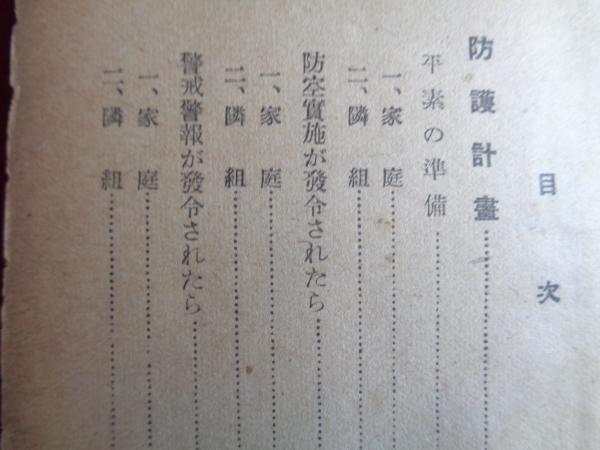 目次
防護計畫
平素の準備
一、家庭
二、隣組
防空實施が發令されたら
一、家庭
二、隣組
警戒警報が發令されたら
一、家庭
二、隣組